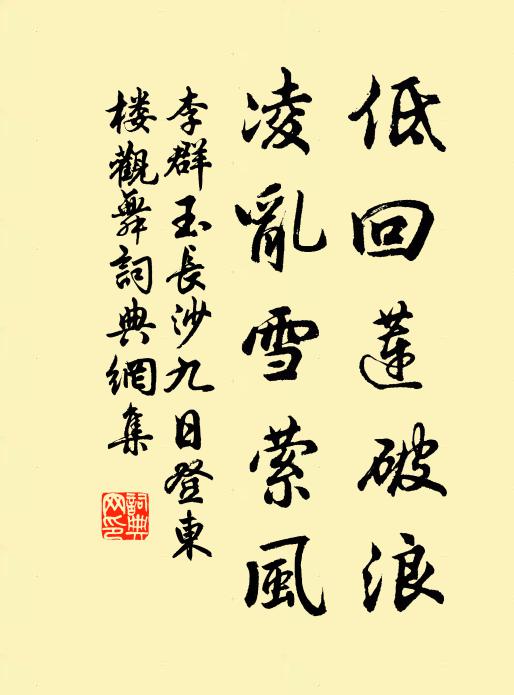 低回莲破浪
凌亂雪萦風
李群玉長沙九日登東
楼觀舞詞典網集
詞典
网印